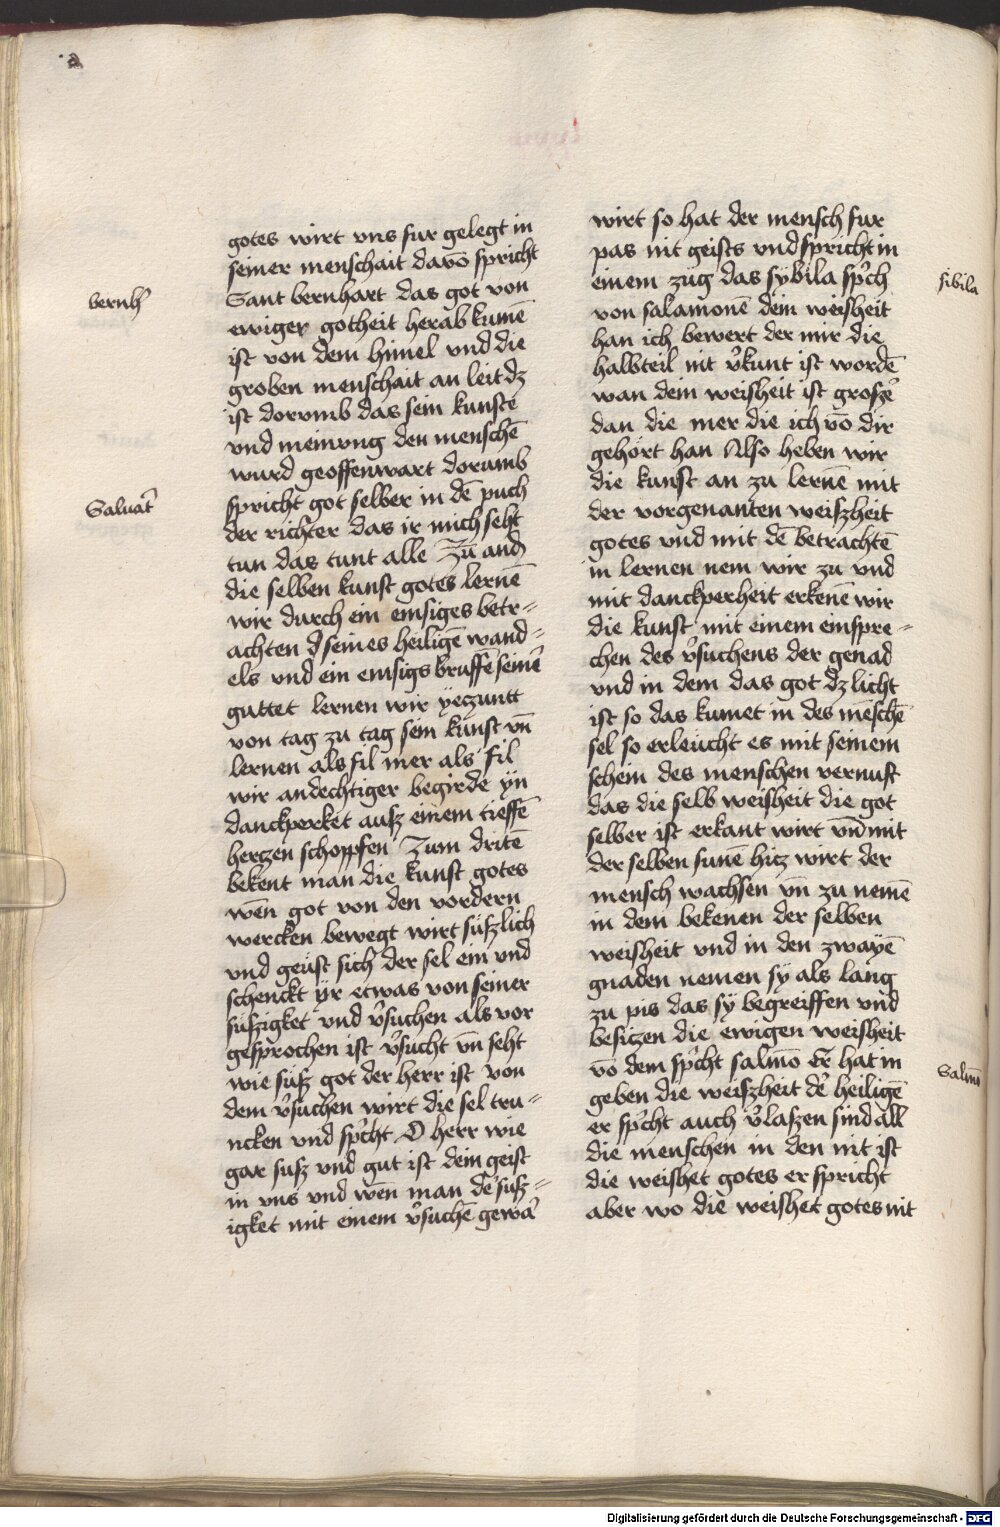 a
gotes wirt vns fur gelegt in
seiner menschait davō spricht
bernhˀ
Sant bernhart das got von
ewiger gotheit herab kumē
ist von dem himel vnd die
groben menschait an leit dz
ist dorumb das sein kunste
vnd meinvng den menschē
wurd geoffenwart dorumb
Saluatˀ
spricht got selber in dē puch
der richter das ir mich seht
tun das tunt alle Zū andˀ
die selben kunst gotes lernē
wir durch ein emsiges betr=
achten dˀ seines heiligē wand=
els vnd ein emsigs bruffē seinˀ
guttet lernen wir yeczuntt
von tag zu tag sein kunst vn̄
lernen als fil mer als fil
wir andechtiger begirde yn
danckperket ausz einem tieffē
herczen schoppfen Zum dritē
bekent man die kunst gotes
wēn got von den vordern
wercken bewegt wirt süszlich
vnd geüst sich der sel ein vnd
schenckt yr etwas von seiner
süszigket vnd vˀsuchen als vor
gesprochen ist vˀsucht vn̄ seht
wie süsz got der herr ist von
dem vˀsuchen wirt die sel tru=
ncken vnd spˀcht O herr wie
gar susz vnd gut ist dein geist
in vns vnd wēn man dē susz=
igket mit einem vˀsuchē gewarˀ
wirt so hat der mensch fur
pas nit geists vnd spricht in
sibila
einem züg das sybila spˀch
von salamonē dein weisheit
han ich bewert der mir die
halbteil nit vˀkunt ist wordē
wan dein weisheit ist groszˀ
dan die mer die ich vō dir
gehört han Also heben wir
die kunst an zu lernē mit
der vorgenanten weiszheit
gotes vnd mit dē betrachtē
in lernen nem wir zu vnd
mit danckperheit erkenē wir
die kunst mit einem einspre=
chen des vˀsuchens der genad
vnd in dem das got dz licht
ist so das kumet in des mēschē
sel so erleücht es mit seinem
schein des menschen vernuft
das die selb weisheit die got
selber ist erkant wirt vn̄ mit
der selben sunē hicz wirt der
mensch wachsen vn̄ zu nemē
in dem bekenen der selben
weisheit vnd in den zwayē
gnaden nemen sy als lang
zu pis das sy begreiffen vnd
besiczen die ewigen weisheit
Salmō
vō dem spˀcht salmō Er hat in
geben die weiszheit dˀ heiligē
er spˀcht auch vˀlaszen sind all
die menschen in den nit ist
die weishet gotes er spricht
aber wo die weishet gotes nit
Digitalisierung gefördert durch die Deutsche Forschungsgemeinschaft - DFG